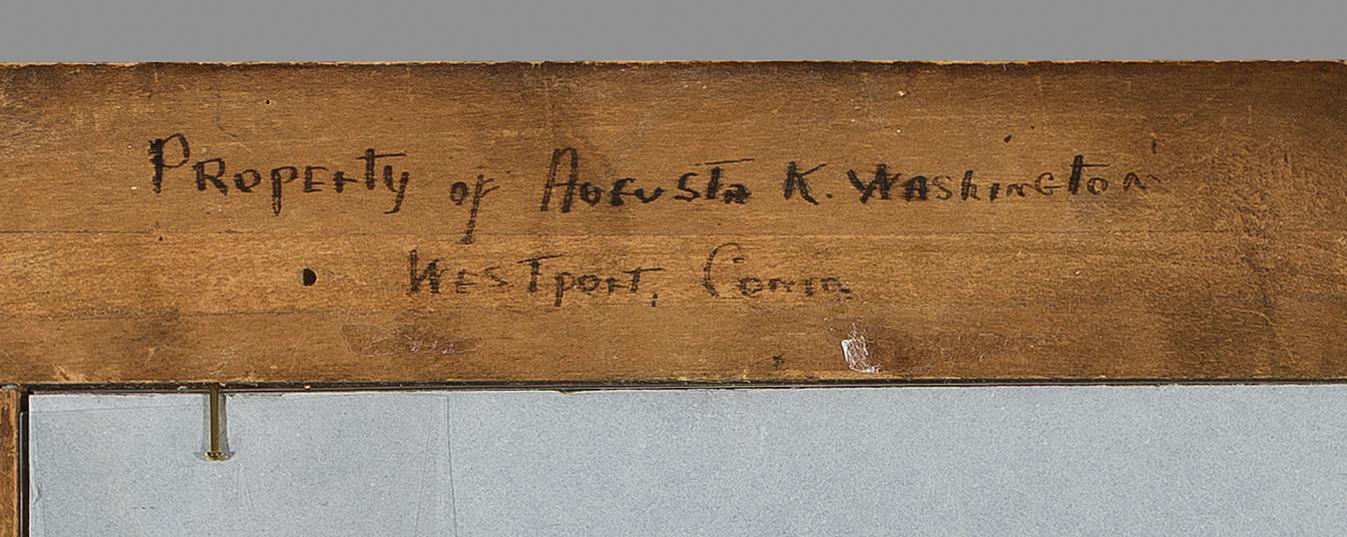 Property of Augusta K. Washington
Westport, Conn.